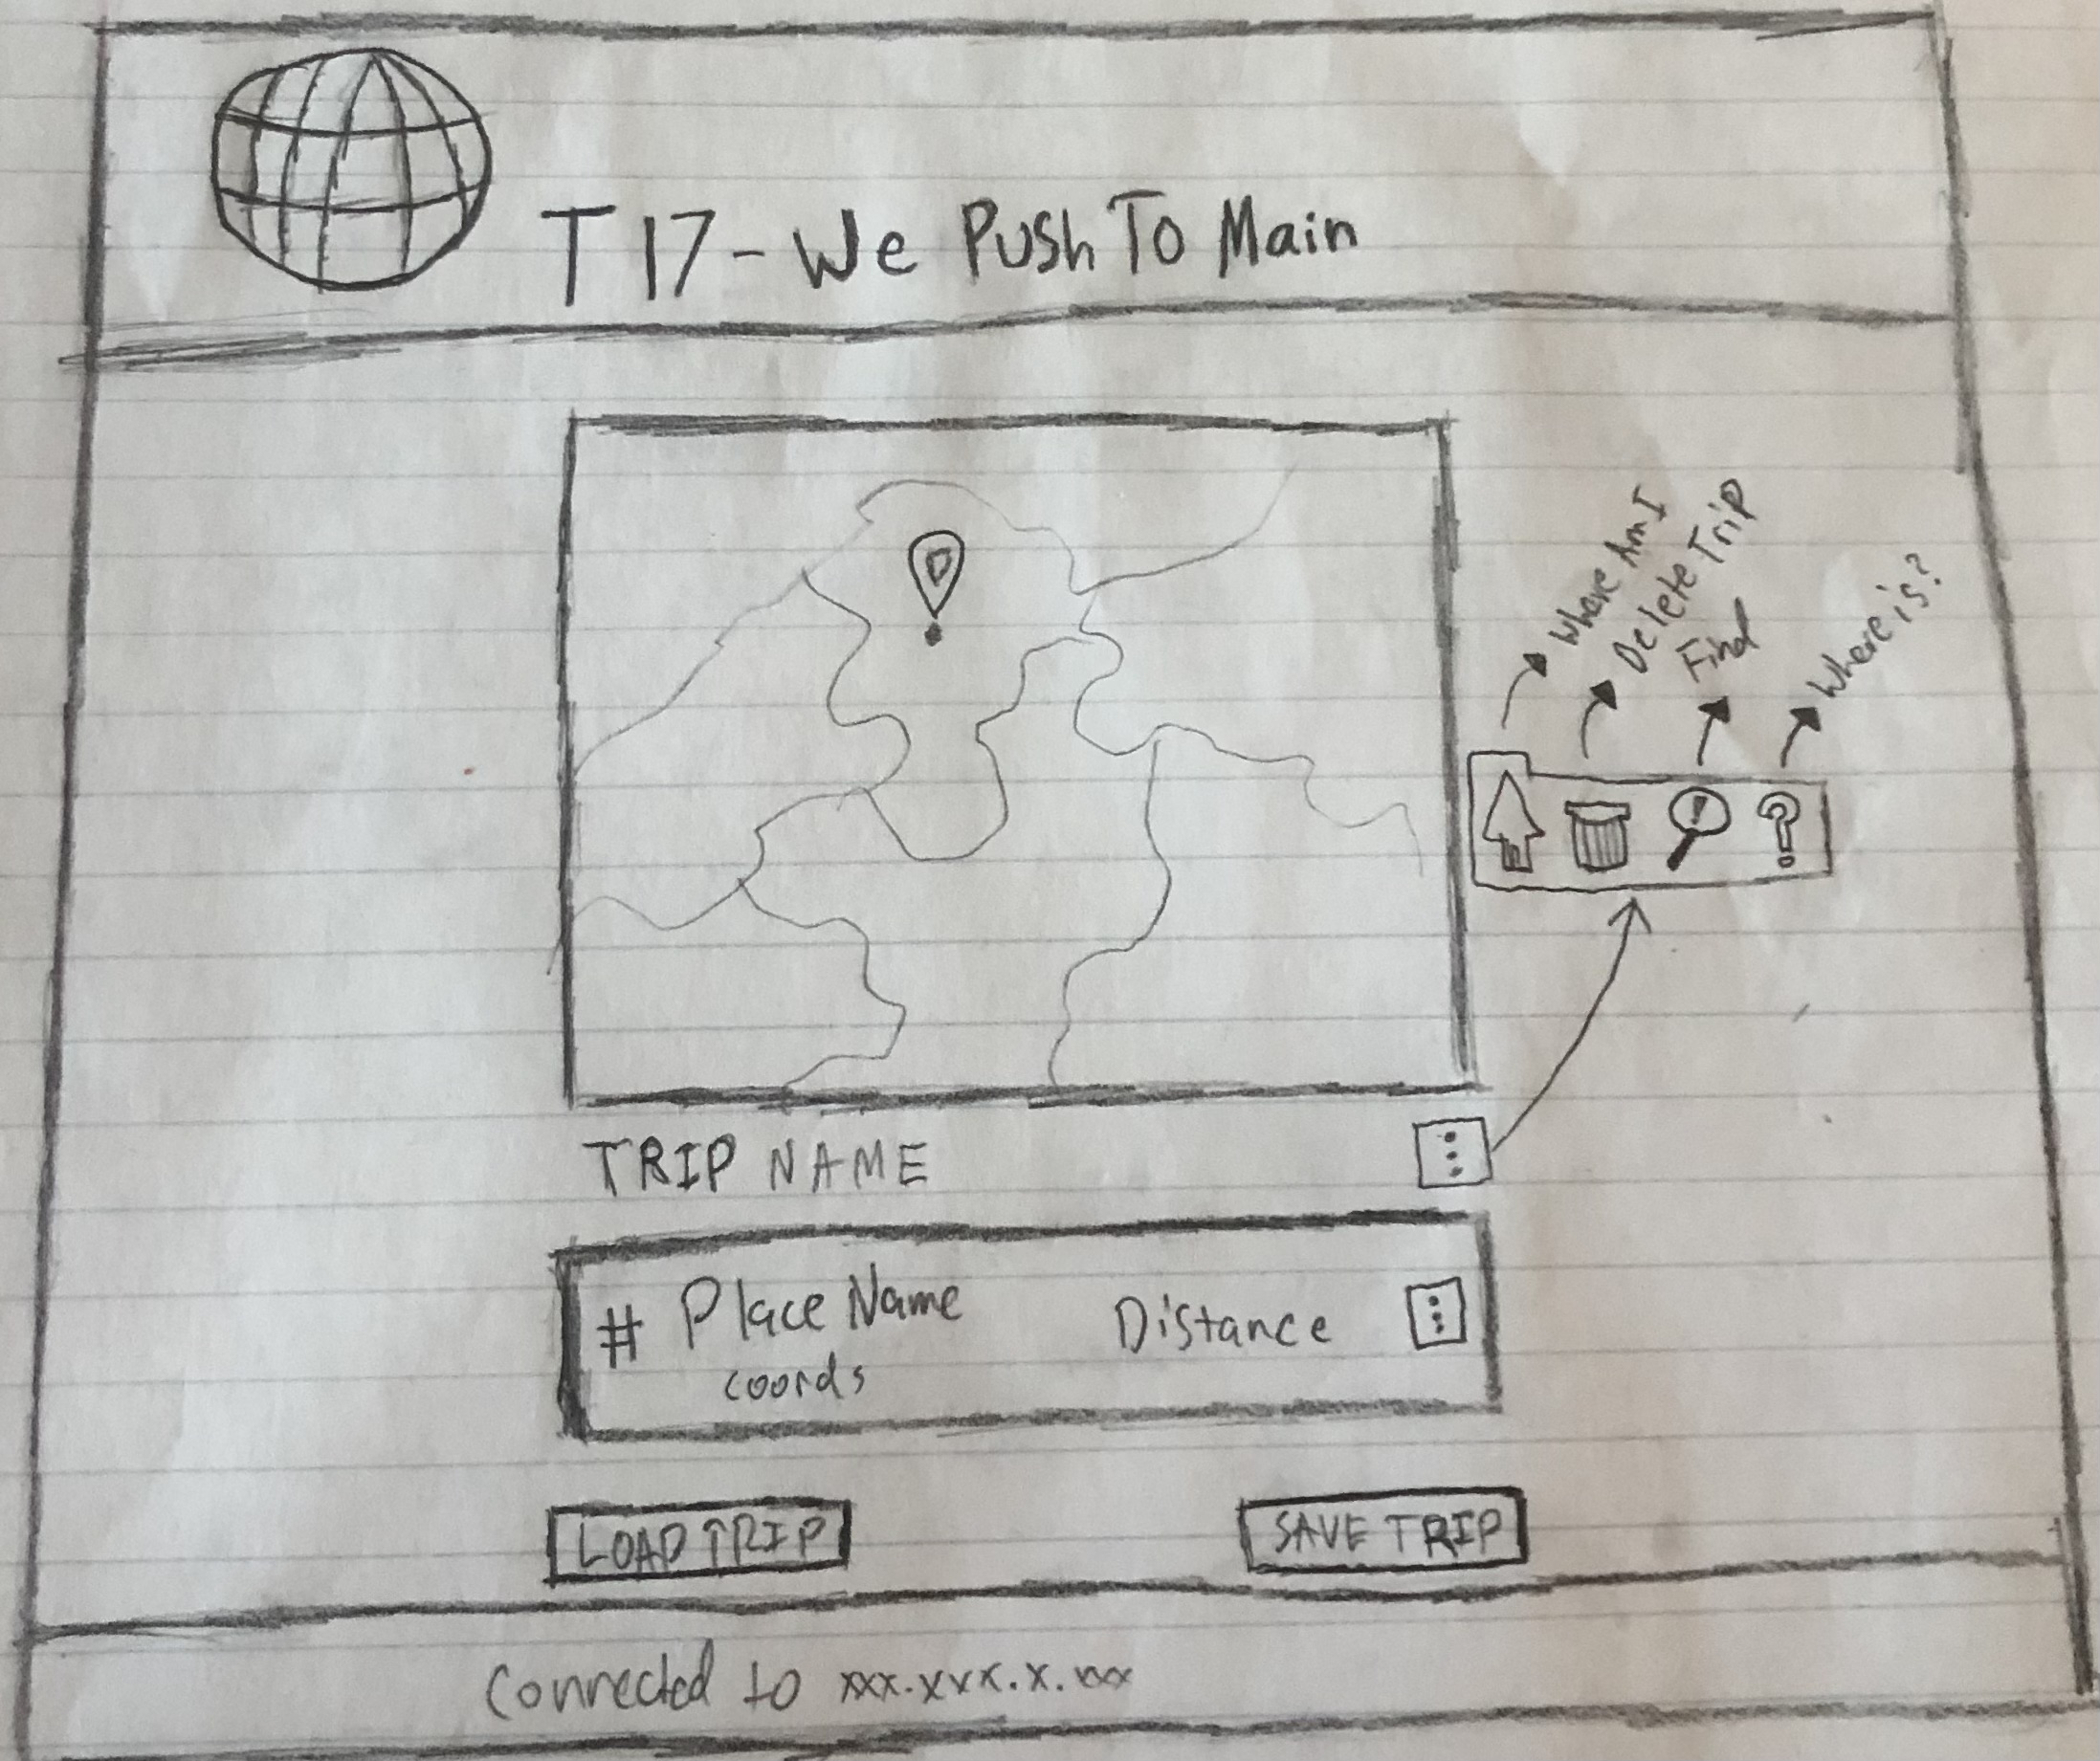 T17 - We Push To Main
Where Am I
Delete Trip
Find
Where is?
TRIP NAME
# Place Name
Distance
coords
LOAD TRIP
SAVE TRIP
Connected to xxx.xxx.x.xxx